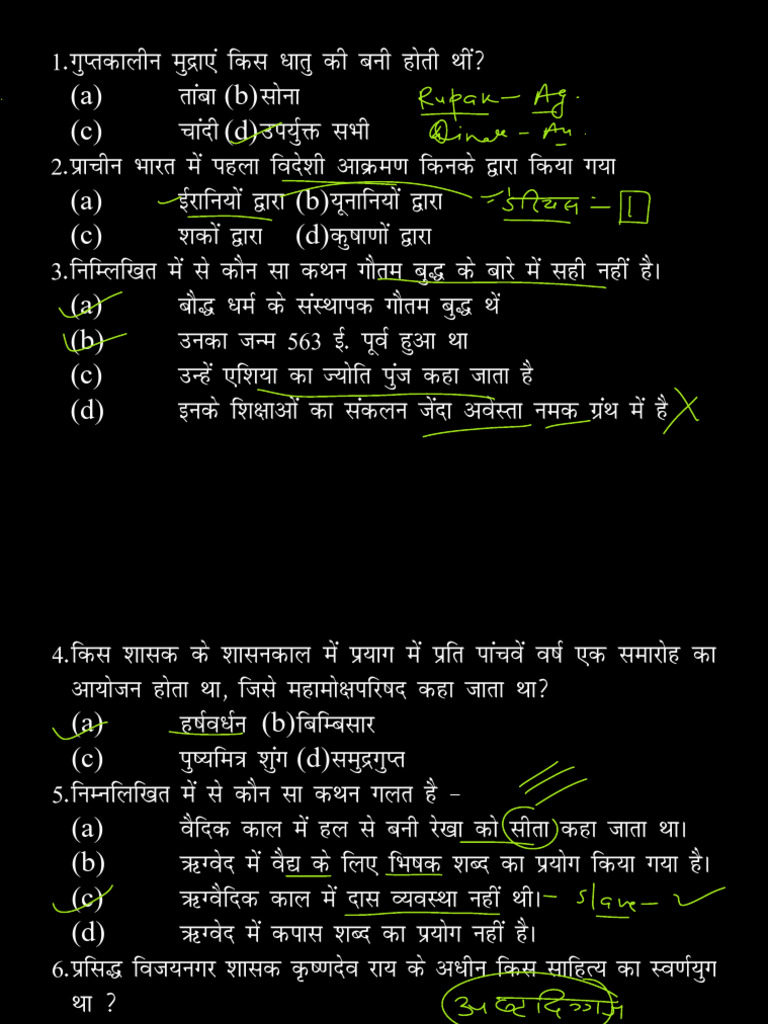 1.गुप्तकालीन मुद्राएं किस धातु की बनी होती थीं?
(a) तांबा (b)सोना Rupak – Ag.
(c) चांदी (d)उपर्युक्त सभी Dinar – Au.
2.प्राचीन भारत में पहला विदेशी आक्रमण किनके द्वारा किया गया
(a) ईरानियों द्वारा (b)यूनानियों द्वारा डेरियस :- 1
(c) शकों द्वारा (d)कुषाणों द्वारा
3.निम्लिखित में से कौन सा कथन गौतम बुद्ध के बारे में सही नहीं है।
(a) बौद्ध धर्म के संस्थापक गौतम बुद्ध थें
(b) उनका जन्म 563 ई. पूर्व हुआ था
(c) उन्हें एशिया का ज्योति पुंज कहा जाता है
(d) इनके शिक्षाओं का संकलन जेंदा अवेस्ता नमक ग्रंथ में है
4.किस शासक के शासनकाल में प्रयाग में प्रति पांचवें वर्ष एक समारोह का
आयोजन होता था, जिसे महामोक्षपरिषद कहा जाता था?
(a) हर्षवर्धन (b)बिम्बिसार
(c) पुष्यमित्र शुंग (d)समुद्रगुप्त
5.निम्नलिखित में से कौन सा कथन गलत है –
(a) वैदिक काल में हल से बनी रेखा को सीता कहा जाता था।
(b) ऋग्वेद में वैद्य के लिए भिषक शब्द का प्रयोग किया गया है।
(c) ऋग्वैदिक काल में दास व्यवस्था नहीं थी। – Slave –
(d) ऋग्वेद में कपास शब्द का प्रयोग नहीं है।
6.प्रसिद्ध विजयनगर शासक कृष्णदेव राय के अधीन किस साहित्य का स्वर्णयुग
था ? अष्टदिग्गज